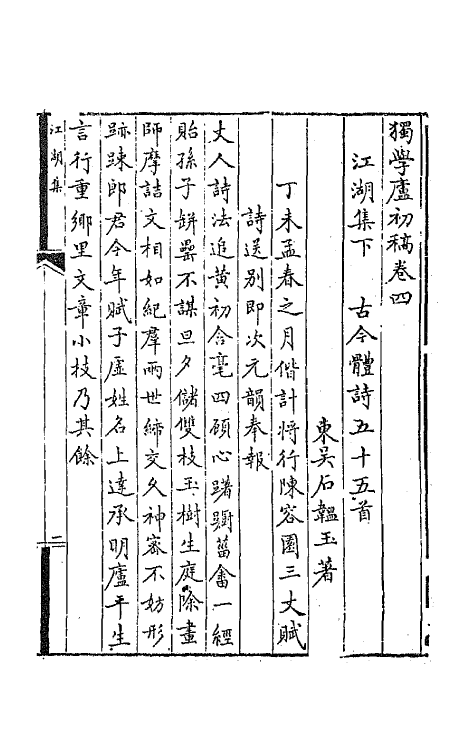 獨學廬初稿卷四
江湖集下　古今體詩五十五首
東吳石韞玉著
丁未孟春之月偕計將行陳容園三丈賦
詩送別即次元韻奉報
丈人詩法追黃初含毫四顧心躊躕菑畬一經
貽孫子缾罍不謀旦夕儲雙枝玉樹生庭除畫
師摩詰文相如紀羣兩世締交久神密不妨形
跡踈郎君今年賦子虛姓名上達承明廬平生
言行重鄉里文章小技乃其餘
江湖集